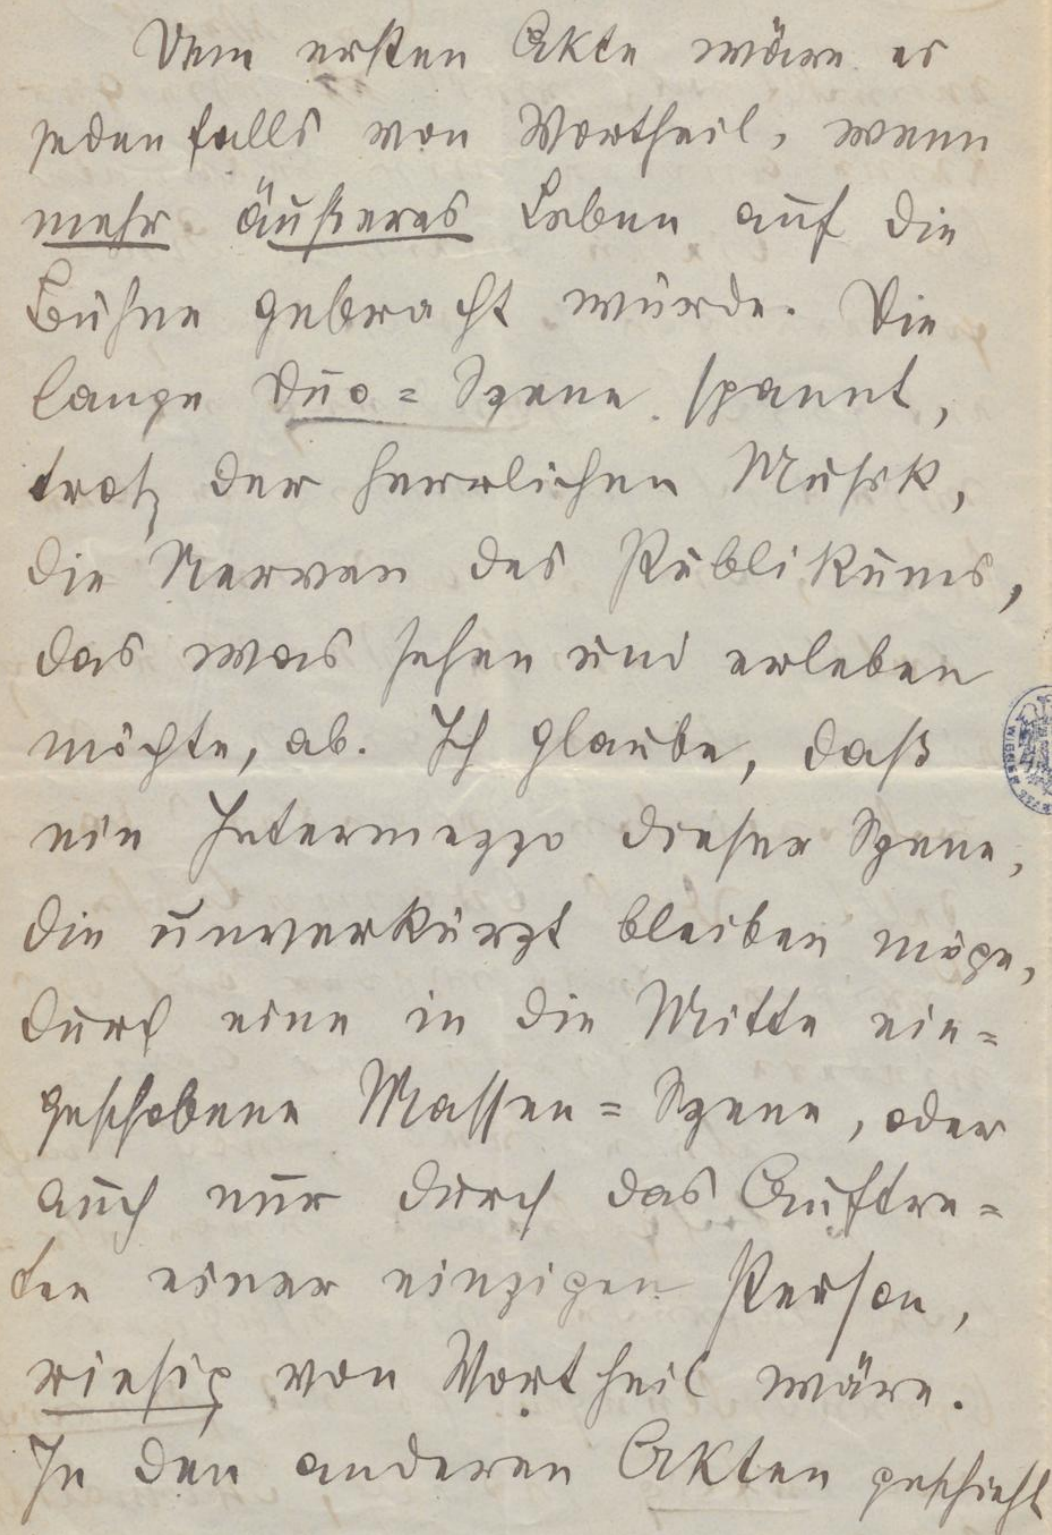 Dem ersten Akte wäre es
jedenfalls von Vortheil, wenn
mehr äußeres Leben auf die
Bühne gebracht würde. Die
lange Duo = Szene spannt,
trotz der herrlichen Musik,
die Nerven des Publikums,
das was sehen und erleben
möchte, ab. Ich glaube, daß
ein Intermezzo dieser Szene,
die unverkürzt bleiben möge,
durch eine in die Mitte ein=
geschobene Massen = Szene, oder
auch nur durch das Auftre=
ten einer einzigen Person,
riesig von Vortheil wäre.
In den anderen Akten geschieht